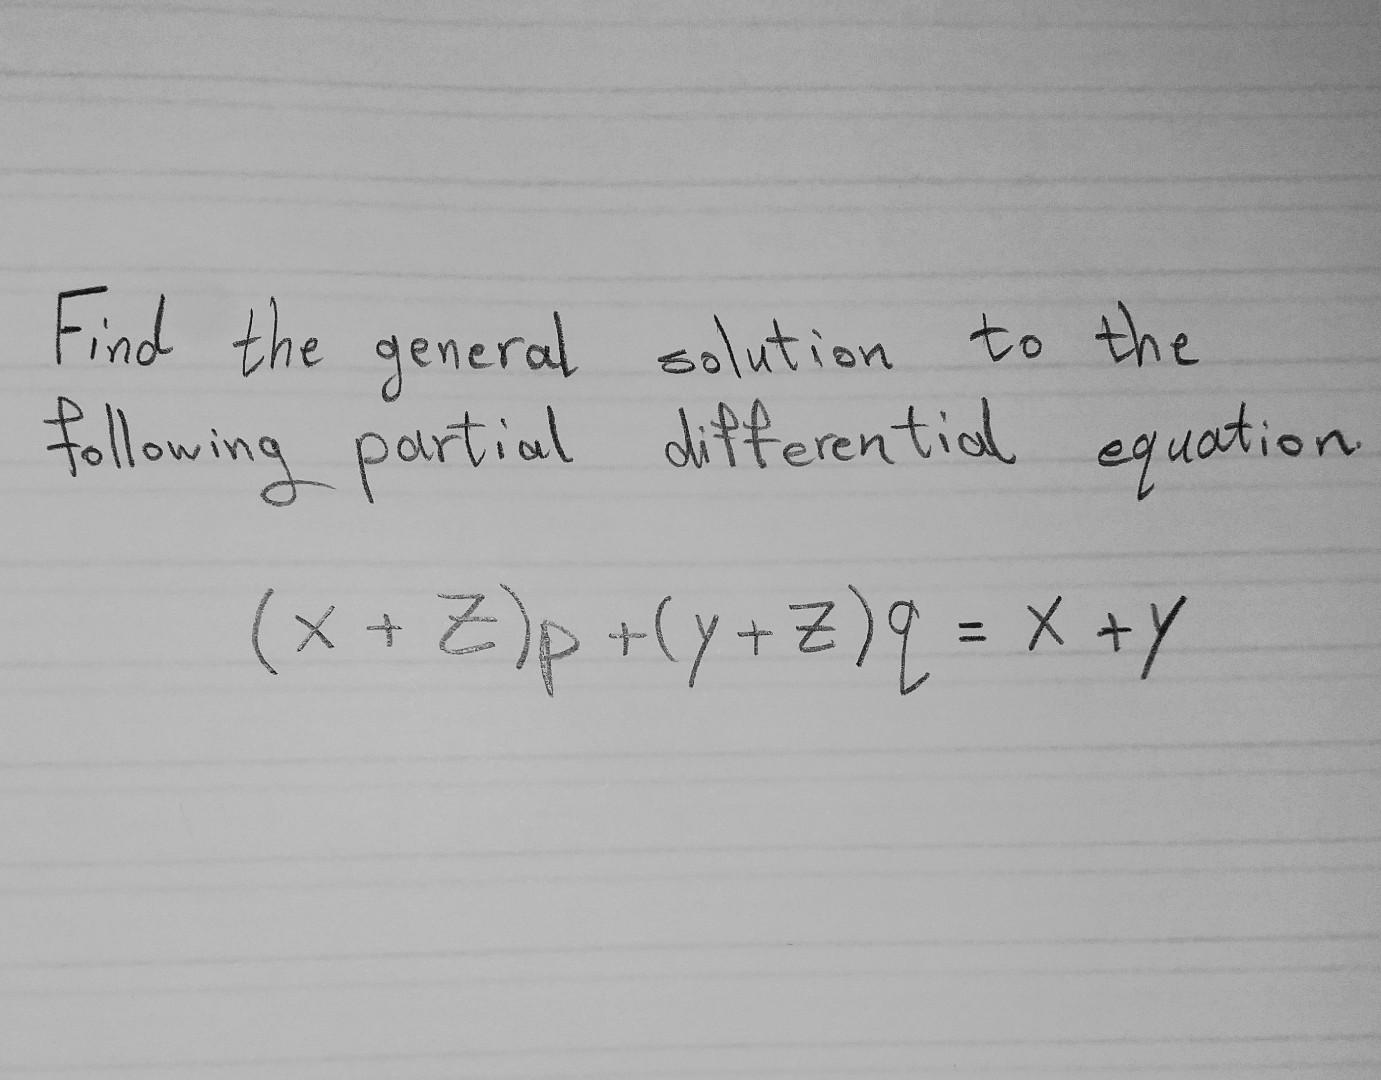 Find the general solution to the
following partial differential equation
(x + z)p + (y + z)q = x + y